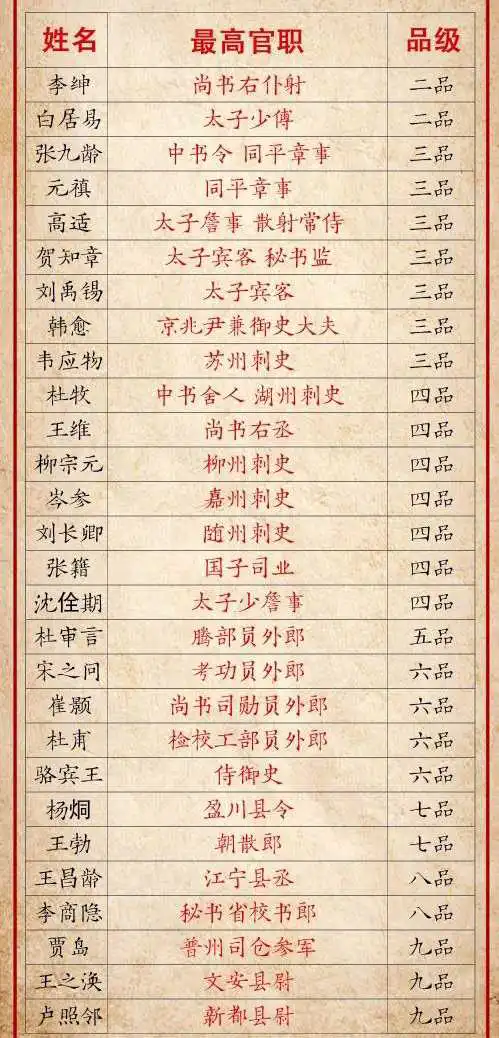 姓名 最高官职 品级
李绅 尚书右仆射 二品
白居易 太子少傅 二品
张九龄 中书令 同平章事 三品
元禛 同平章事 三品
高适 太子詹事 散射常侍 三品
贺知章 太子宾客 秘书监 三品
刘禹锡 太子宾客 三品
韩愈 京兆尹兼御史大夫 三品
韦应物 苏州刺史 三品
杜牧 中书舍人 湖州刺史 四品
王维 尚书右丞 四品
柳宗元 柳州刺史 四品
岑参 嘉州刺史 四品
刘长卿 随州刺史 四品
张籍 国子司业 四品
沈佺期 太子少詹事 四品
杜审言 膳部员外郎 五品
宋之问 考功员外郎 六品
崔颢 尚书司勋员外郎 六品
杜甫 检校工部员外郎 六品
骆宾王 侍御史 六品
杨炯 盈川县令 七品
王勃 朝散郎 七品
王昌龄 江宁县丞 八品
李商隐 秘书省校书郎 八品
贾岛 普州司仓参军 九品
王之涣 文安县尉 九品
卢照邻 新都县尉 九品